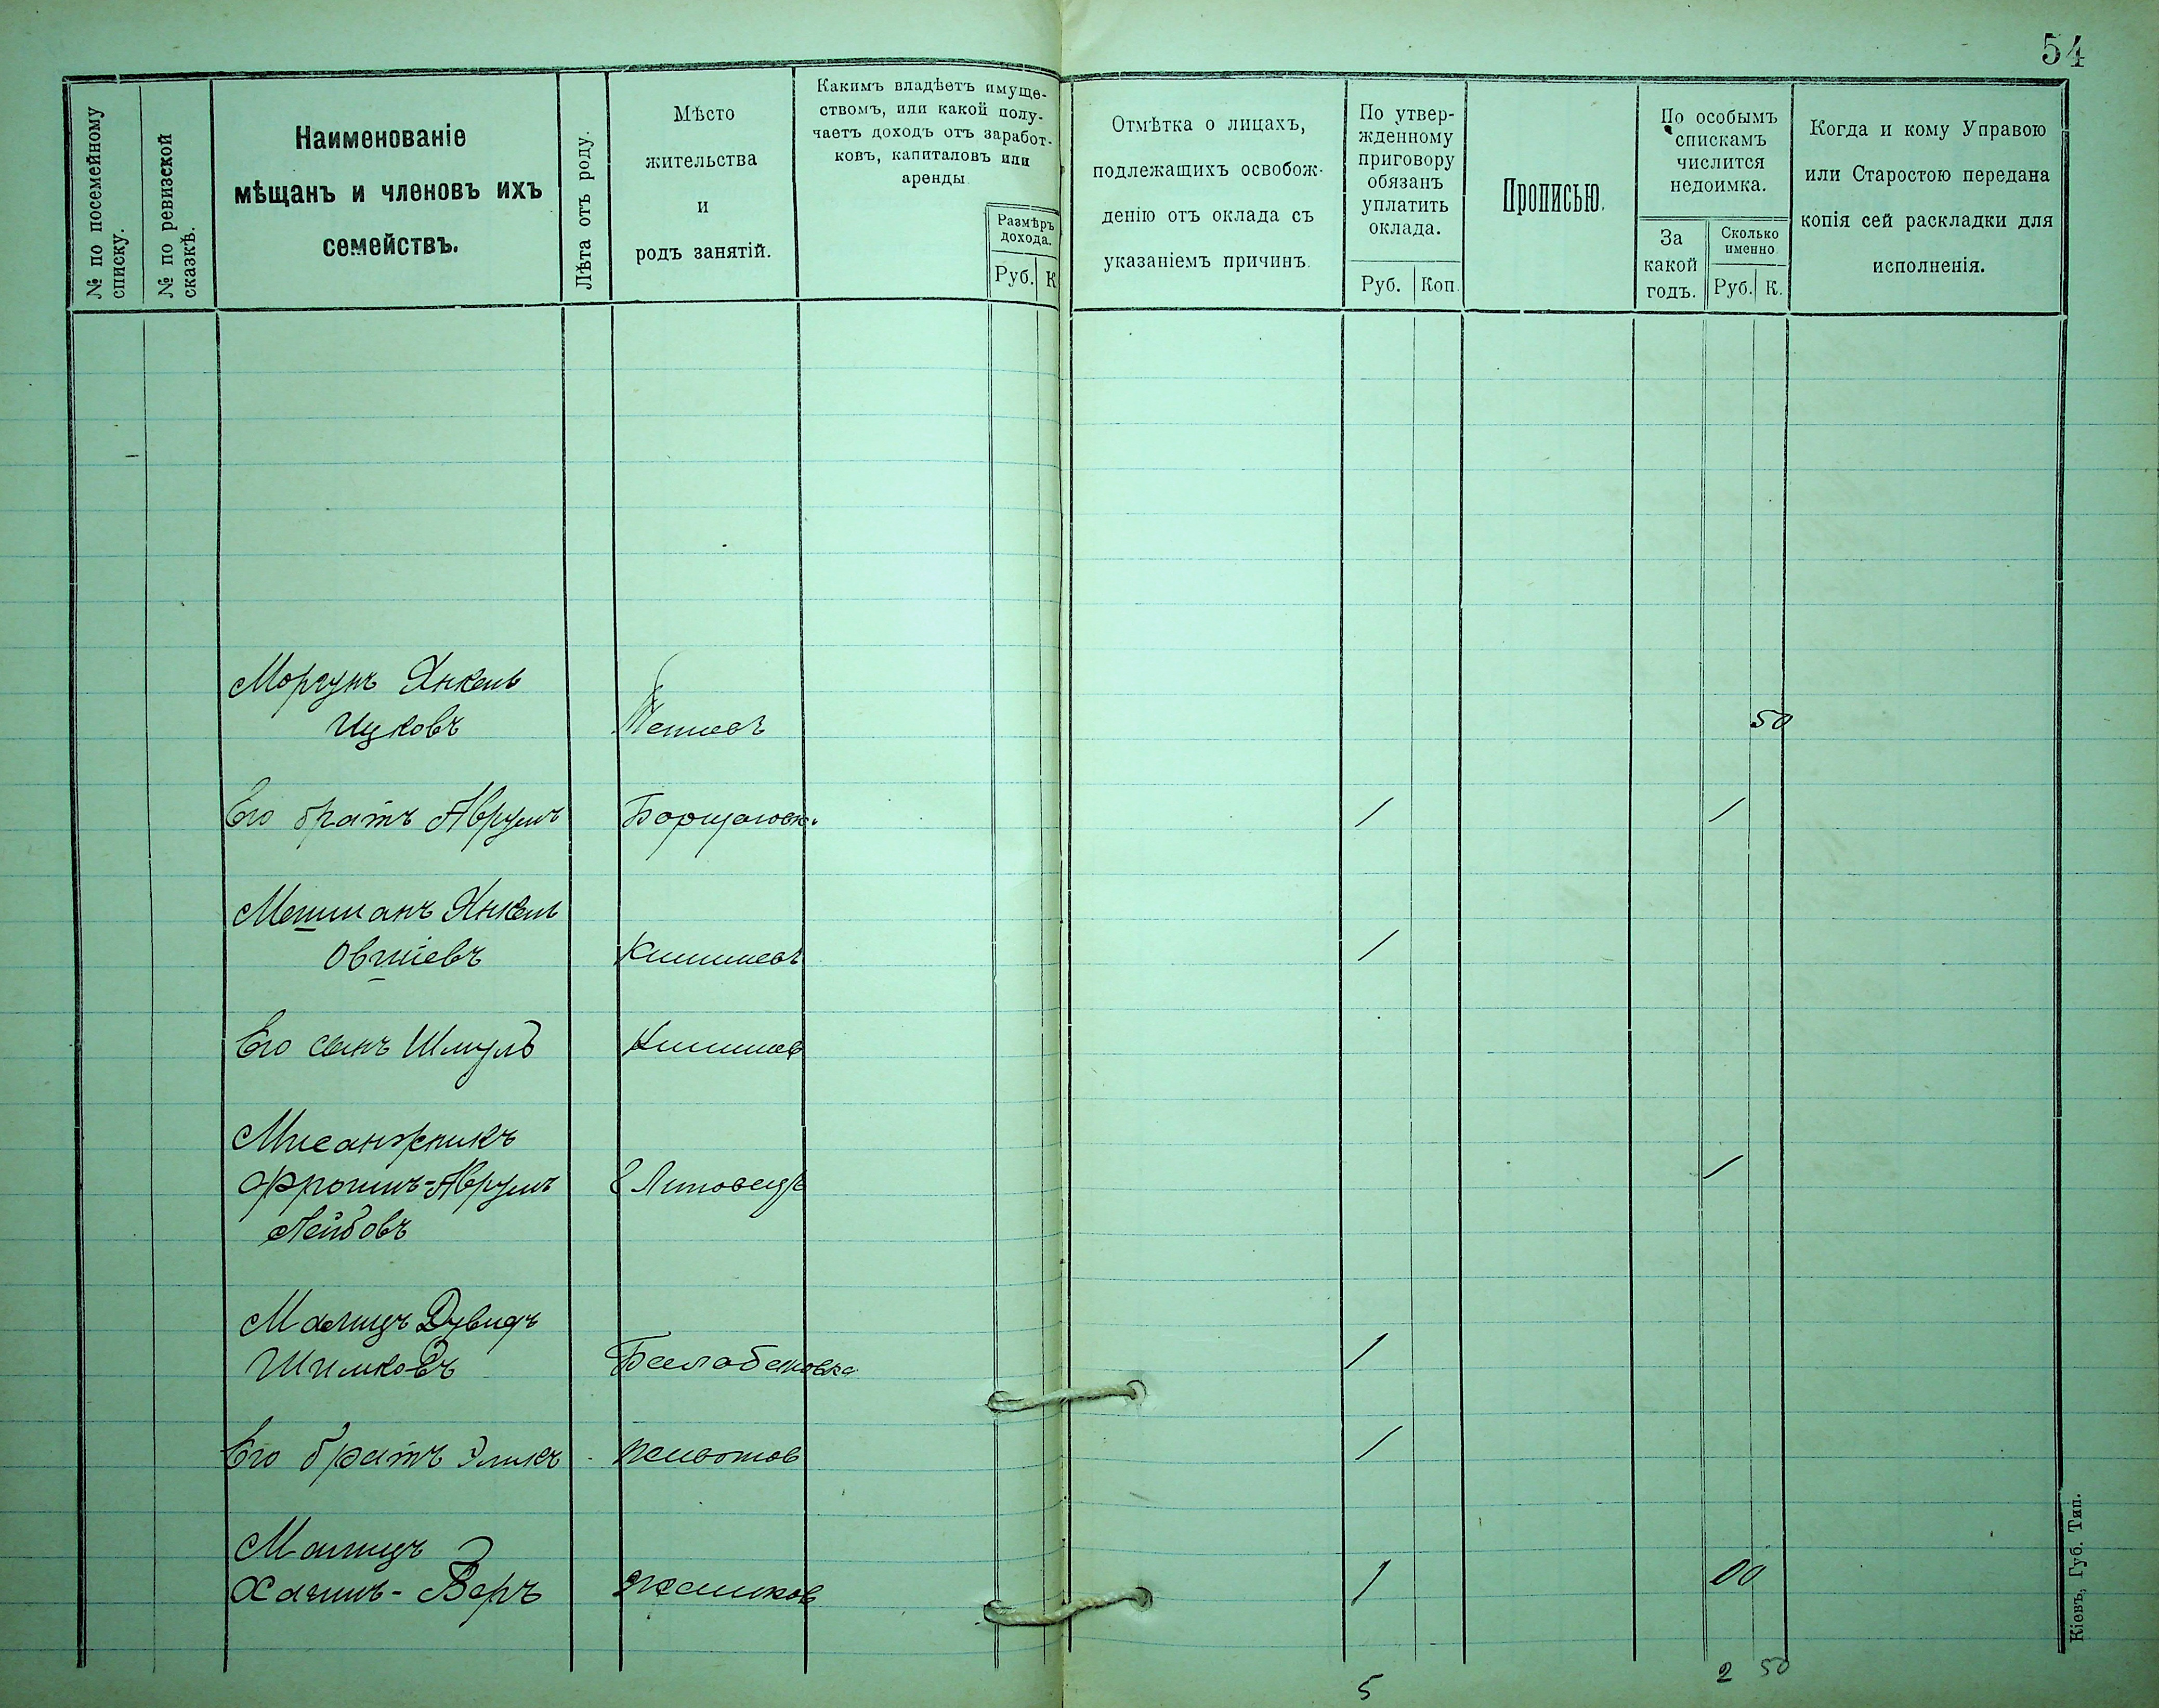 54
№ по посемейному
списку.
№ по ревизской
сказкѣ.
Наименованіе
мѣщанъ и членовъ ихъ
семействъ.
Лѣта отъ роду.
Мѣсто
жительства
и
родъ занятій.
Какимъ владѣетъ имуще-
ствомъ, или какой полу-
чаетъ доходъ отъ заработ-
ковъ, капиталовъ или
аренды
Размѣръ
дохода.
Руб. К
Отмѣтка о лицахъ,
подлежащихъ освобож-
денію отъ оклада съ
указаніемъ причинъ.
По утвер-
жденному
приговору
обязанъ
уплатить
оклада.
Руб. Коп.
Прописью.
По особымъ
спискамъ
числится
недоимка.
За
какой
годъ.
Сколько
именно
Руб. К.
Когда и кому Управою
или Старостою передана
копія сей раскладки для
исполненія.
Моргунъ Янкель
Ицковъ 50
Его братъ Аврумъ Борщаговк. 1 1
Мешманъ Янкель
Овшіевъ Кишиневъ 1
Его сынъ Шмуль Кишинев
Мисанжникъ
Фроимъ-Аврумъ 1
Лейбовъ
Малицъ Дувидъ
Шимковъ Балабановка 1
Его братъ 1
Малицъ
Хаимъ-Беръ Жашков 1 00
5 2 50
Кіевъ, Губ. Тип.